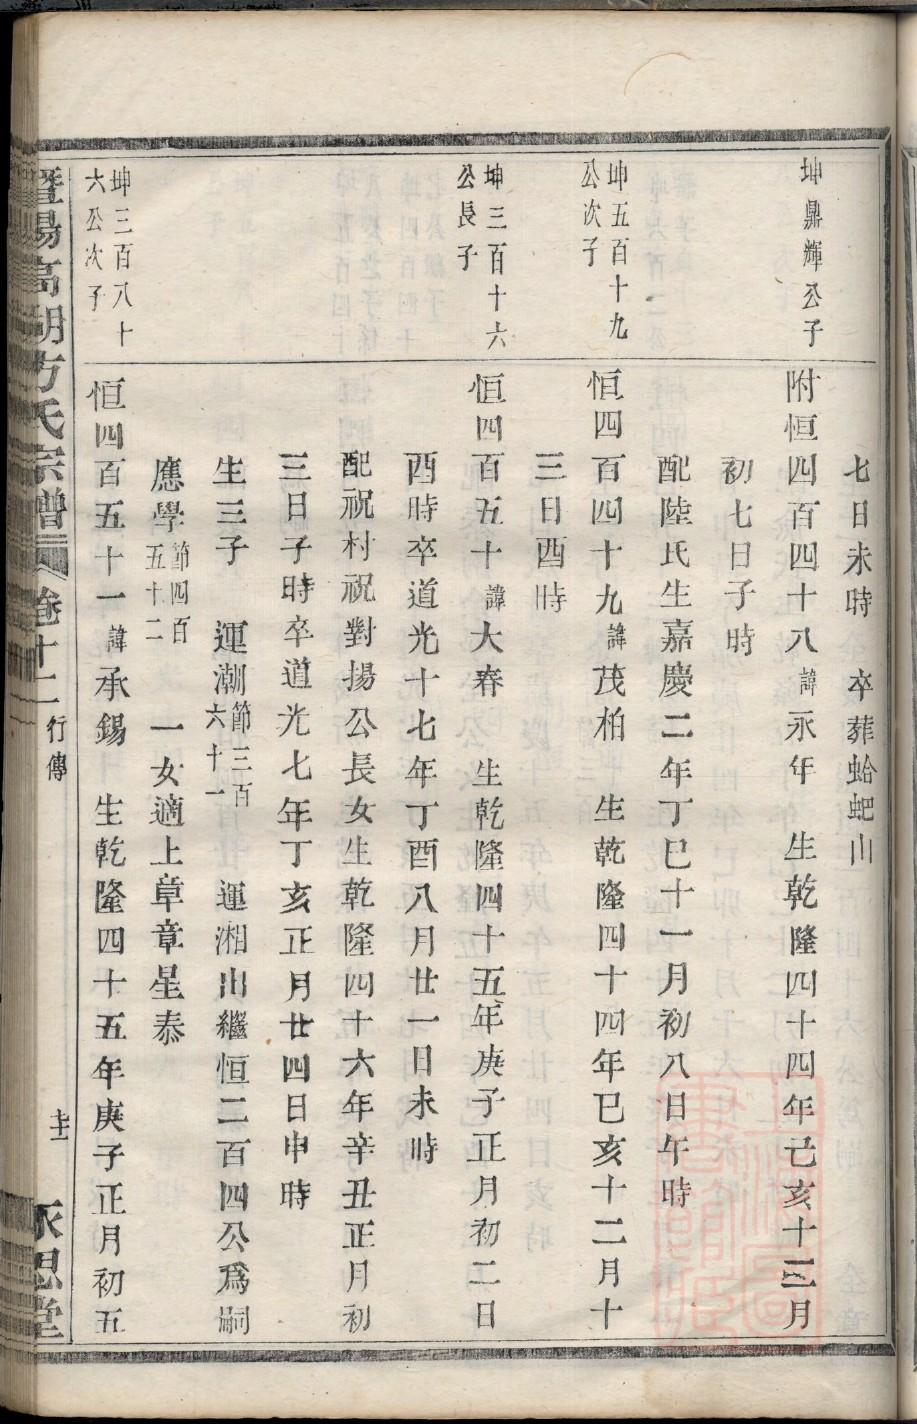 七日未時　卒葬蛤蚆山
坤鼎輝公子
附恒四百四十八諱永年　生乾隆四十四年己亥十二月
初七日子時
配陸氏生嘉慶二年丁巳十一月初八日午時
坤五百十九
公次子
恒四百四十九諱茂柏　生乾隆四十四年己亥十二月十
三日酉時
坤三百十六
公長子
恒四百五十諱大春　生乾隆四十五年庚子正月初二日
酉時卒道光十七年丁酉八月廿一日未時
配祝村祝對揚公長女生乾隆四十六年辛丑正月初
三日子時卒道光七年丁亥正月廿四日申時
生三子　運潮節三百六十一　運湘出繼恒二百四公爲嗣
應學節四百五十二　一女適上章章星泰
坤三百八十
六公次子
恒四百五十一諱承錫　生乾隆四十五年庚子正月初五
暨陽高湖方氏宗譜　卷十二　行傳　永思堂